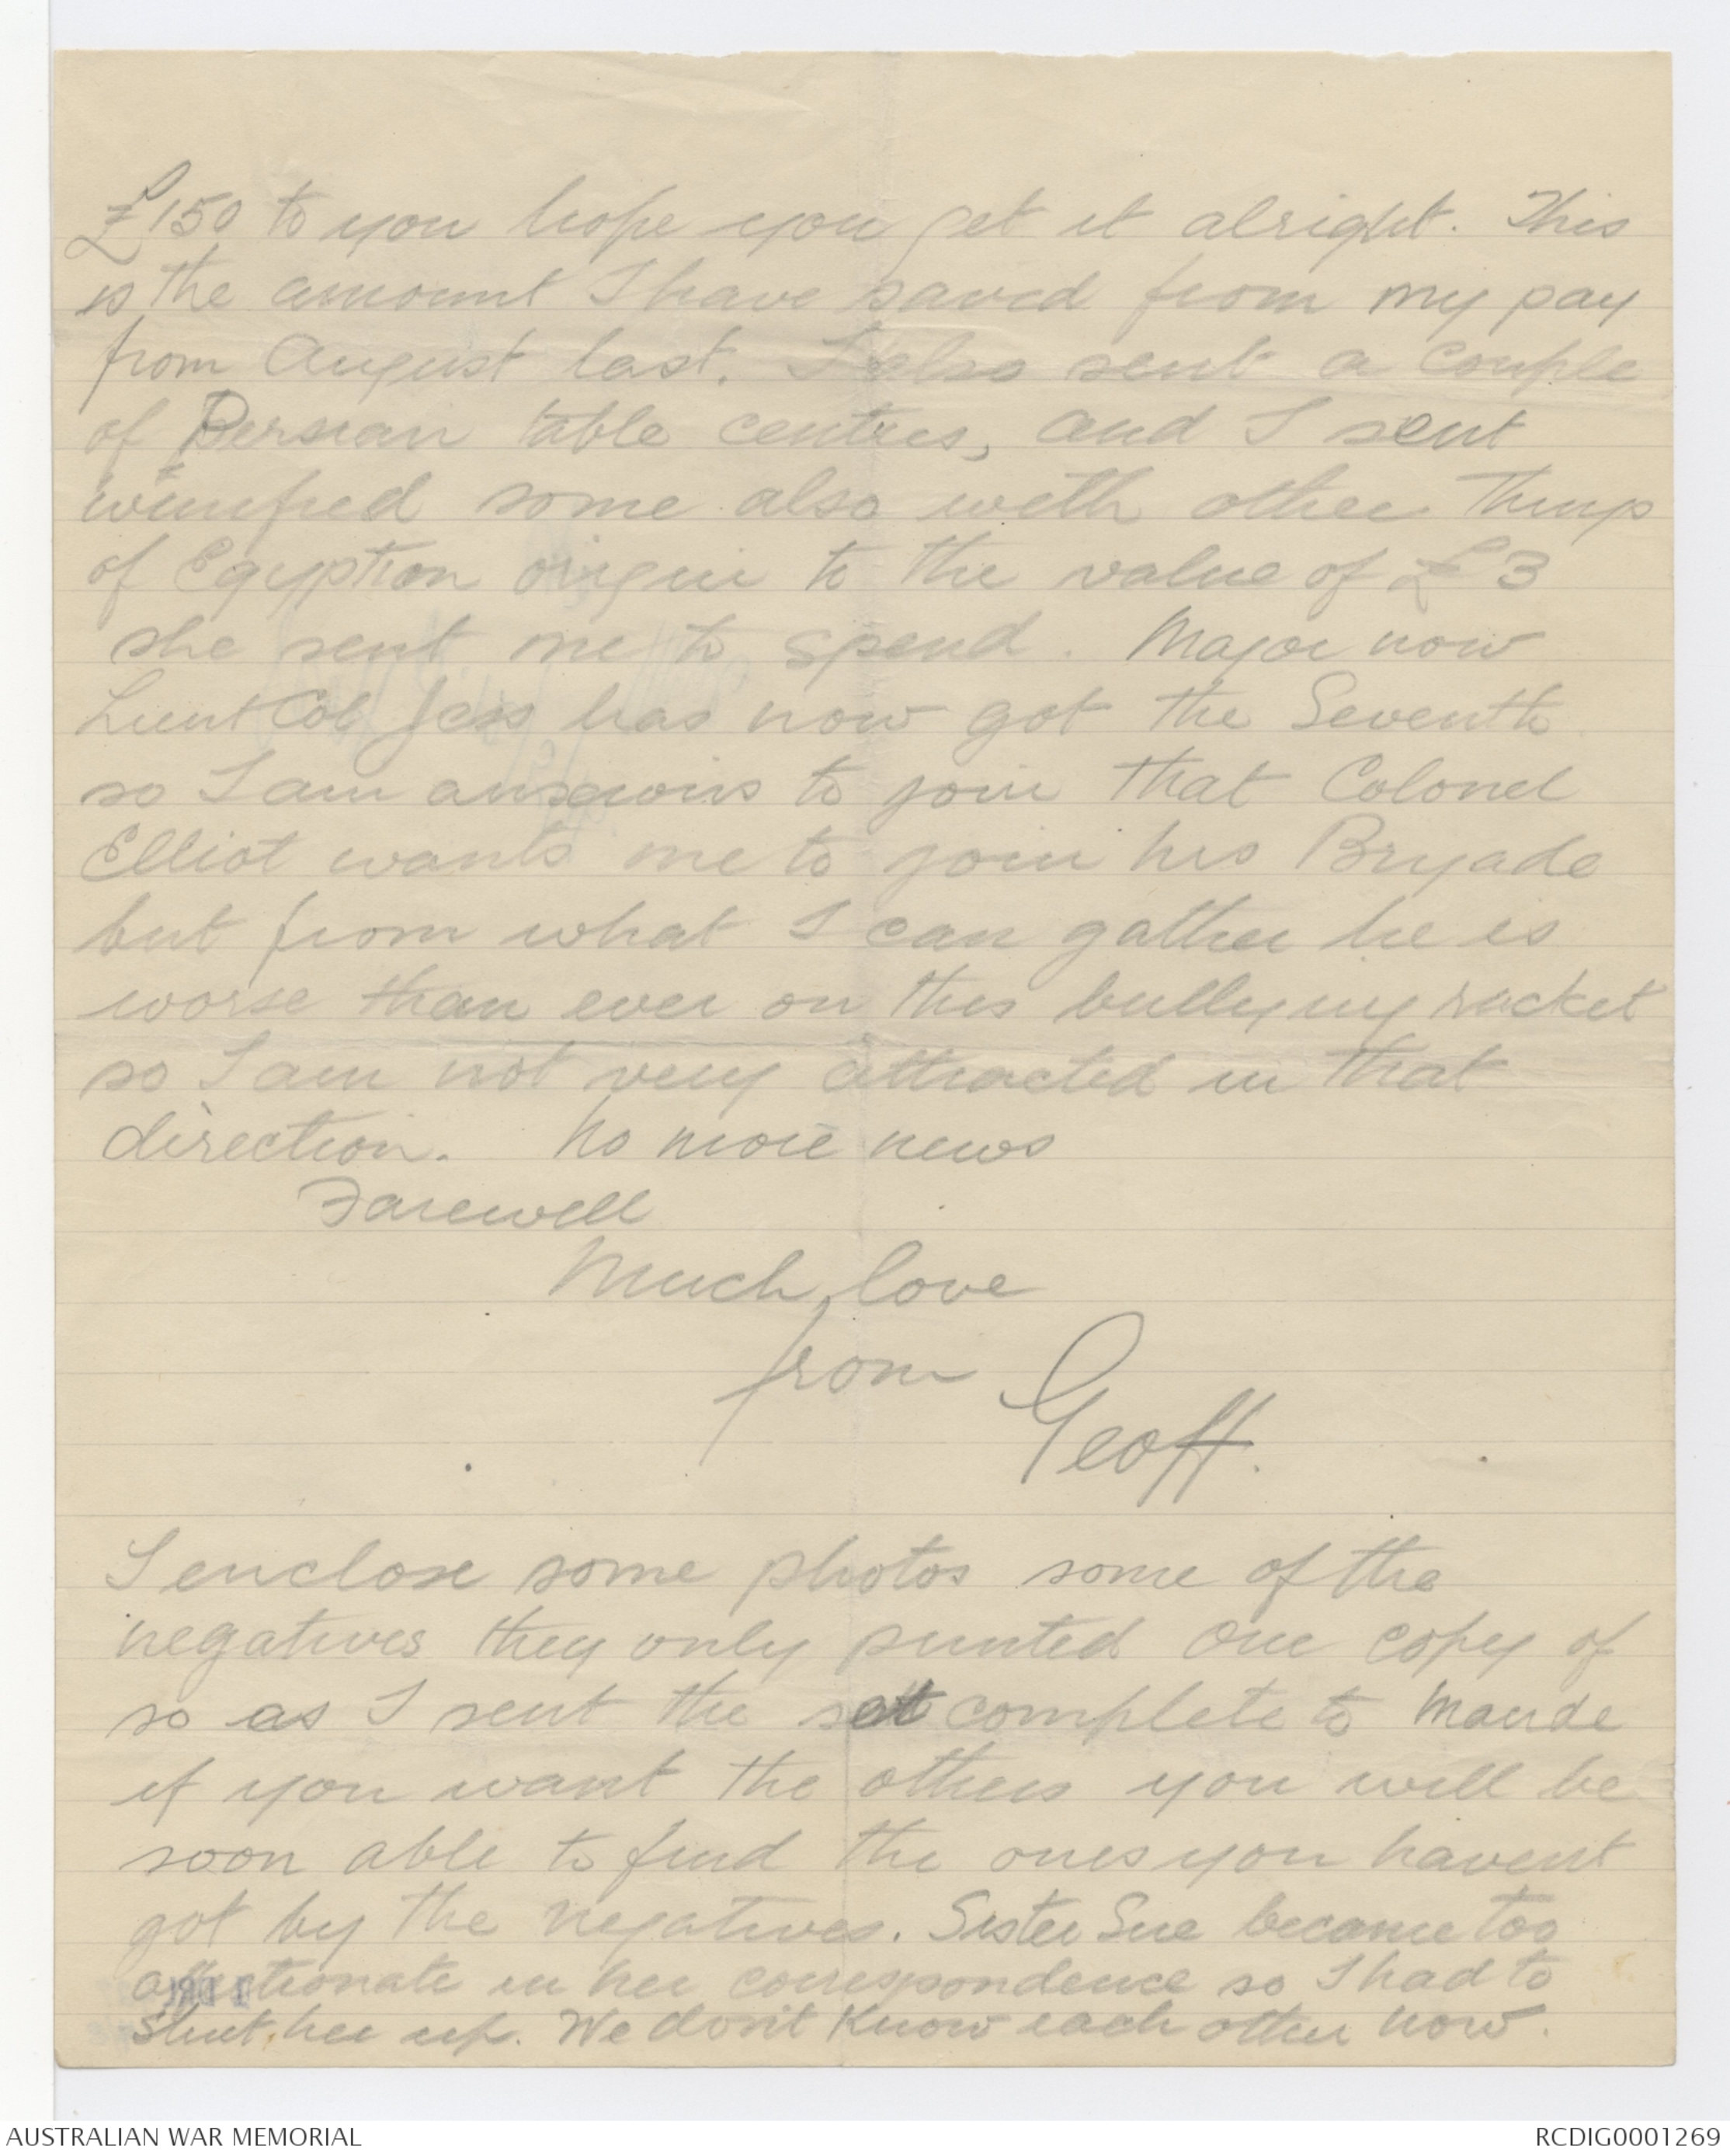 £150 to you hope you get it alright. This
is the amount I have saved from my pay
from August last. I also sent a couple
of Persian table centres, and I sent
Winifred some also with other things
of Egyption origin to the value of £3
she sent me to spend. Major now
Lieut Col Jess has now got the Seventh
so I am anxious to join that Colonel
Elliot wants me to join his Brigade
but from what I can gather he is
worse than ever on this bullying racket
so I am not very attracted in that
direction. No more news
Farewell
Much love
from
Geoff.
I enclose some photos some of the
negatives they only printed one copy of
so as I sent the set complete to Maude
if you want the others you will be
soon able to find the ones you havent
got by the negatives. Sister Sue became too
affectionate in her correspondence so I had to
shut her up. We don't know each other now.
AUSTRALIAN WAR MEMORIAL
RCDIG0001269